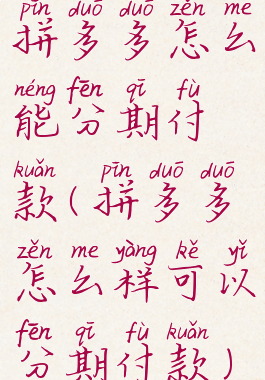 pīn duō duō zěn me
拼多多怎么
néng fēn qī fù
能分期付
kuǎn pīn duō duō
款(拼多多
zěn me yàng kě yǐ
怎么样可以
fēn qī fù kuǎn
分期付款)